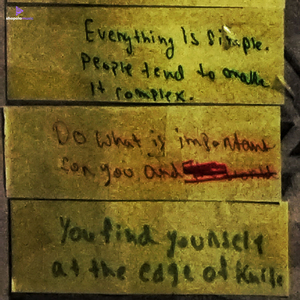 Everything Is Simple.
People tend to make
it complex.
Do what is important
for you and
You find yourself
at the edge of Knife